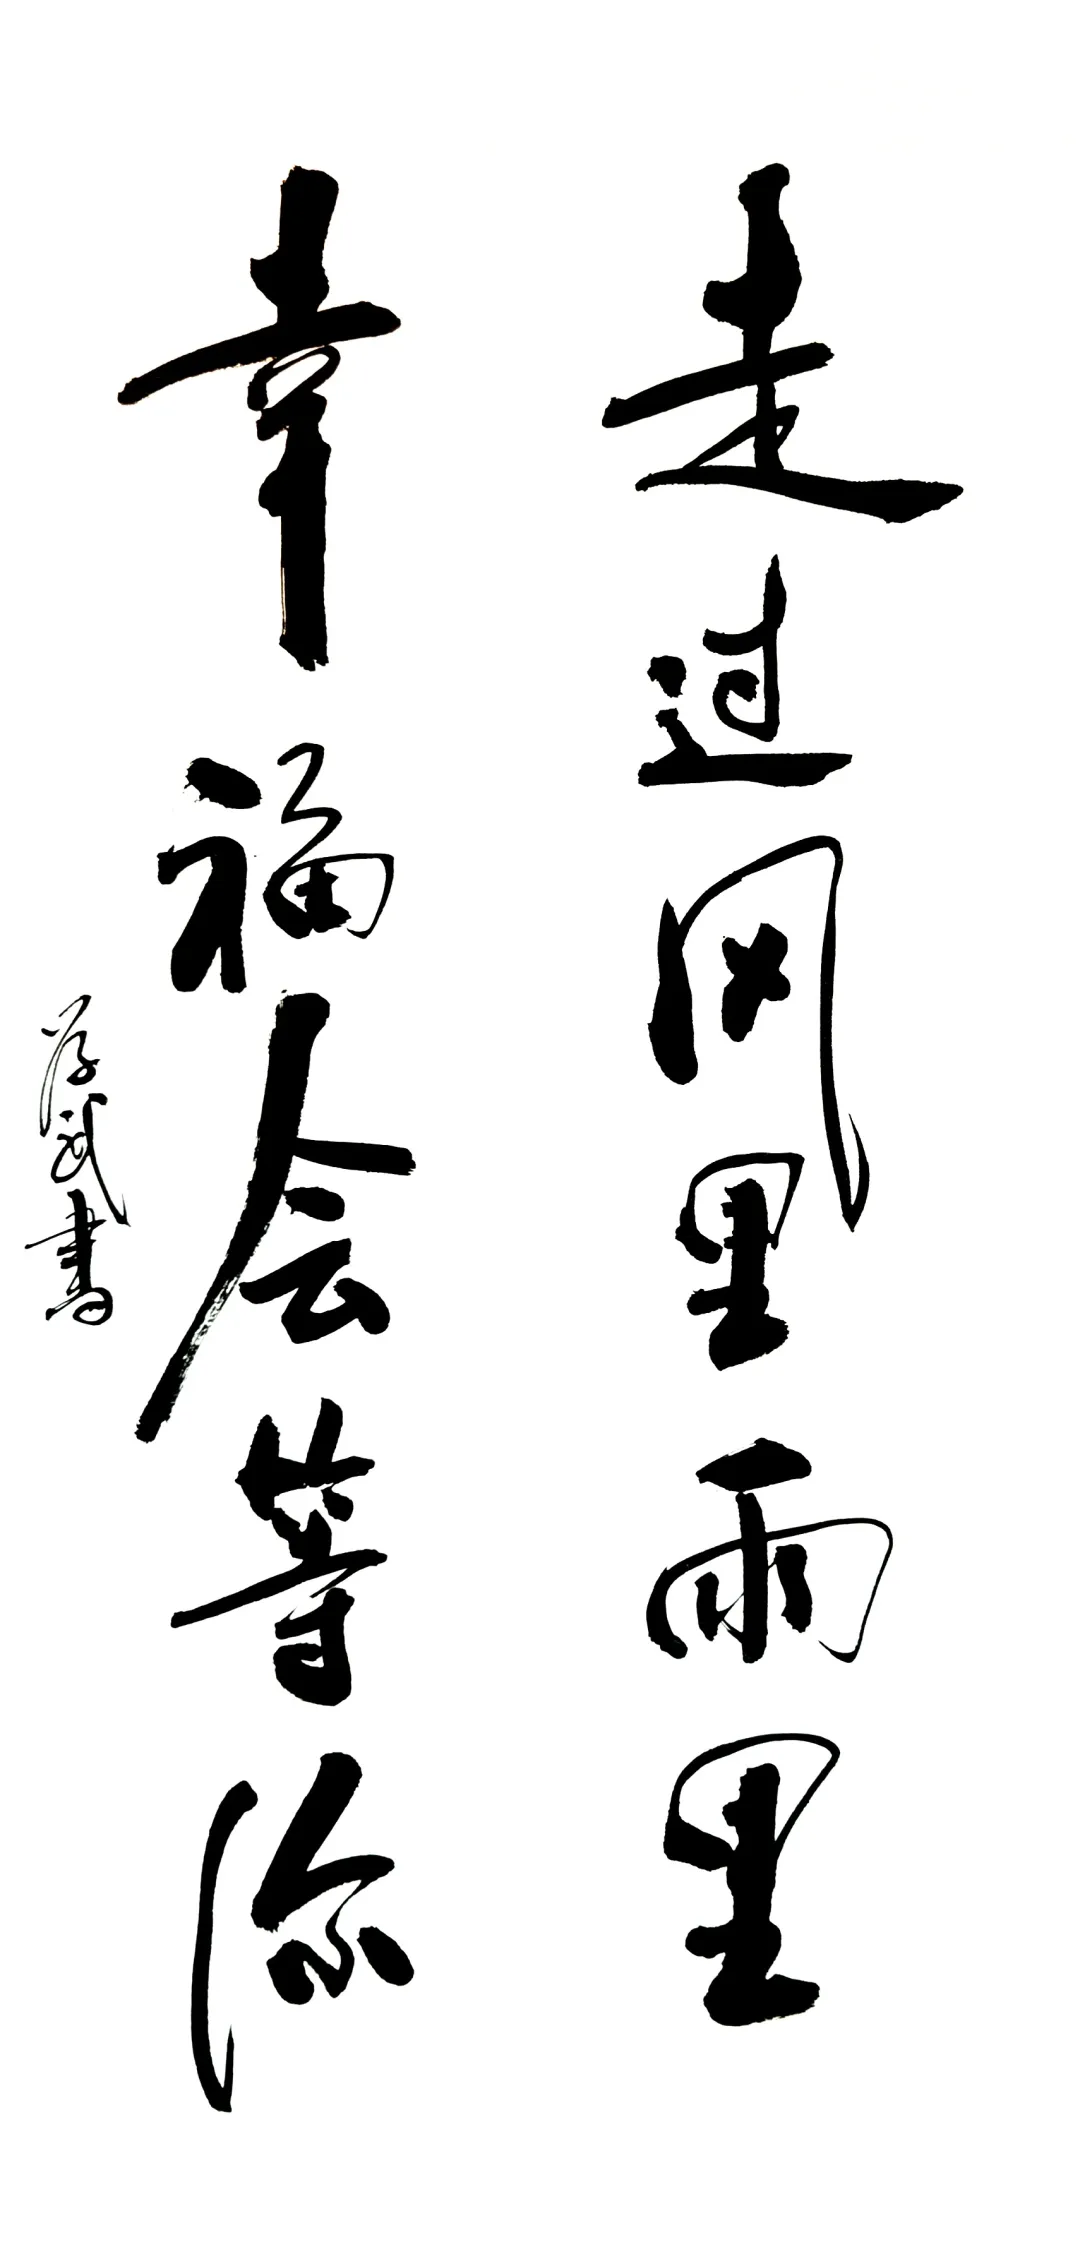 走过风里雨里
幸福会等你
武书